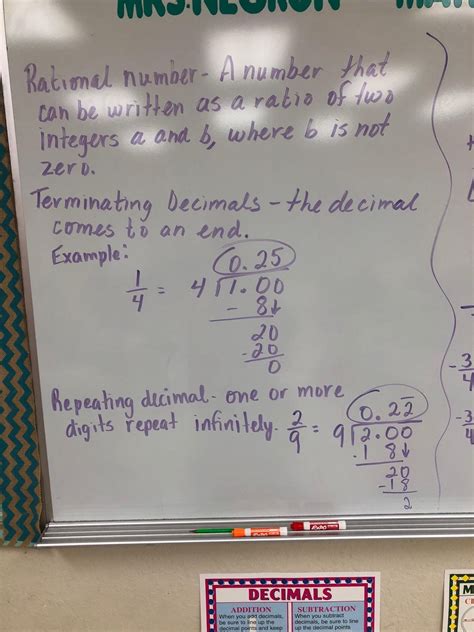 MRS. NEGRON
Rational number - A number that
can be written as a ratio of two
integers a and b, where b is not
zero.
Terminating Decimals - the decimal
comes to an end.
Example:
0.25
1/4 = 4 1.00
- 8↓
20
-20
0
Repeating decimal - one or more
digits repeat infinitely. 2/9 = 9 2.00
0.22̅
-1 8↓
20
-18
2
-3/4
-3
4
EXPO
EXPO
DECIMALS
ADDITION
When you add decimals,
be sure to line up the
decimal points and keep
SUBTRACTION
When you subtract
decimals, be sure to line
up the decimal points